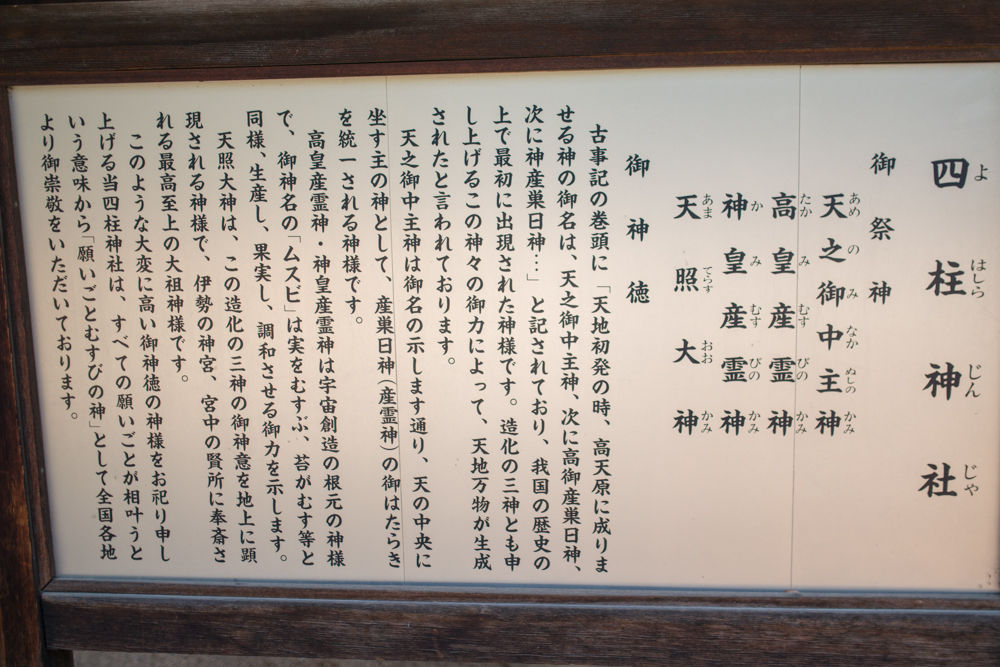 四柱神社
よはしらじんじゃ
御祭神
天之御中主神
あめのみなかぬしのかみ
高皇産霊神
たかみむすびのかみ
神皇産霊神
かみむすびのかみ
天照大神
あまてらすおおかみ
御神徳
古事記の巻頭に「天地初発の時、高天原に成りま
せる神の御名は、天之御中主神、次に高御産巣日神、
次に神産巣日神…」と記されており、我国の歴史の
上で最初に出現された神様です。造化の三神とも申
し上げるこの神々の御力によって、天地万物が生成
されたと言われております。
天之御中主神は御名の示します通り、天の中央に
坐す主の神として、産巣日神(産霊神)の御はたらき
を統一される神様です。
高皇産霊神・神皇産霊神は宇宙創造の根元の神様
で、御神名の「ムスビ」は実をむすぶ、苔がむす等と
同様、生産し、果実し、調和させる御力を示します。
天照大神は、この造化の三神の御神意を地上に顕
現される神様で、伊勢の神宮、宮中の賢所に奉斎さ
れる最高至上の大祖神様です。
このような大変に高い御神徳の神様をお祀り申し
上げる当四柱神社は、すべての願いごとが相叶うと
いう意味から「願いごとむすびの神」として全国各地
より御崇敬をいただいております。